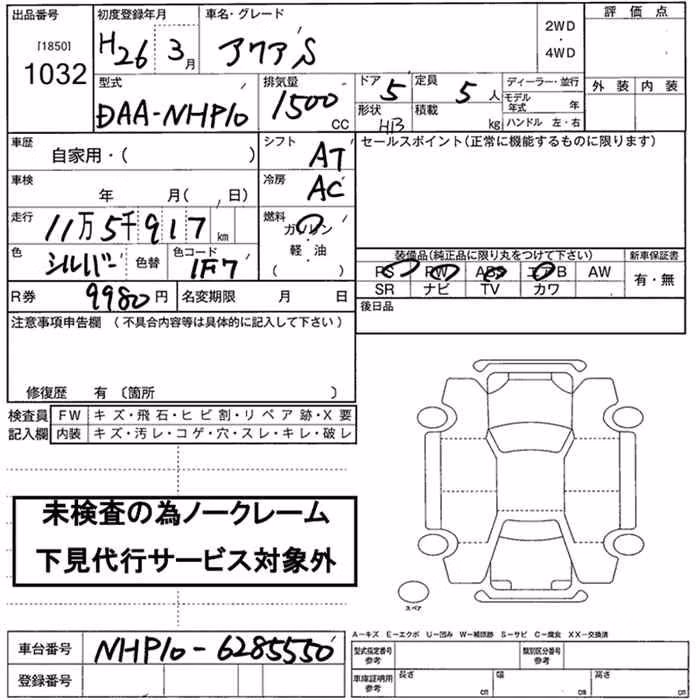 出品番号 初度登録年月 車名・グレード 評価点
[1850] 1032 H26 3月 アクア S 2WD・4WD
外装 内装
型式 排気量 ドア 5 定員 5人 ディーラー・並行
DAA-NHP10 1500 CC 形状 HB 積載 kg モデル年式 年
ハンドル 左・右
車歴 シフト セールスポイント(正常に機能するものに限ります)
自家用・( ) AT
車検 冷房
年 月( , 日) AC
走行 11万5千917km 燃料 ガソリン
軽・油
( )
色 シルバー 色替 色コード 1F7
装備品(純正品に限り丸をつけて下さい) 新車保証書
PS PW ABS エアB AW 有・無
SR ナビ TV カワ
R券 9980円 名変期限 月 日 後日品
注意事項申告欄 (不具合内容等は具体的に記入して下さい)
修復歴 有 (箇所 )
検査員 FW キズ・飛石・ヒビ割・リペア跡・X要
記入欄 内装 キズ・汚レ・コゲ・穴・スレ・キレ・破レ
未検査の為ノークレーム
下見代行サービス対象外
スペア
A-キズ E-エクボ U-凹み W-補修跡 S-サビ C-腐食 XX-交換済
車台番号 NHP10-6285550 型式指定番号 参考 類別区分番号 参考
登録番号 車庫証明用 参考 長さ cm 幅 cm 高さ cm